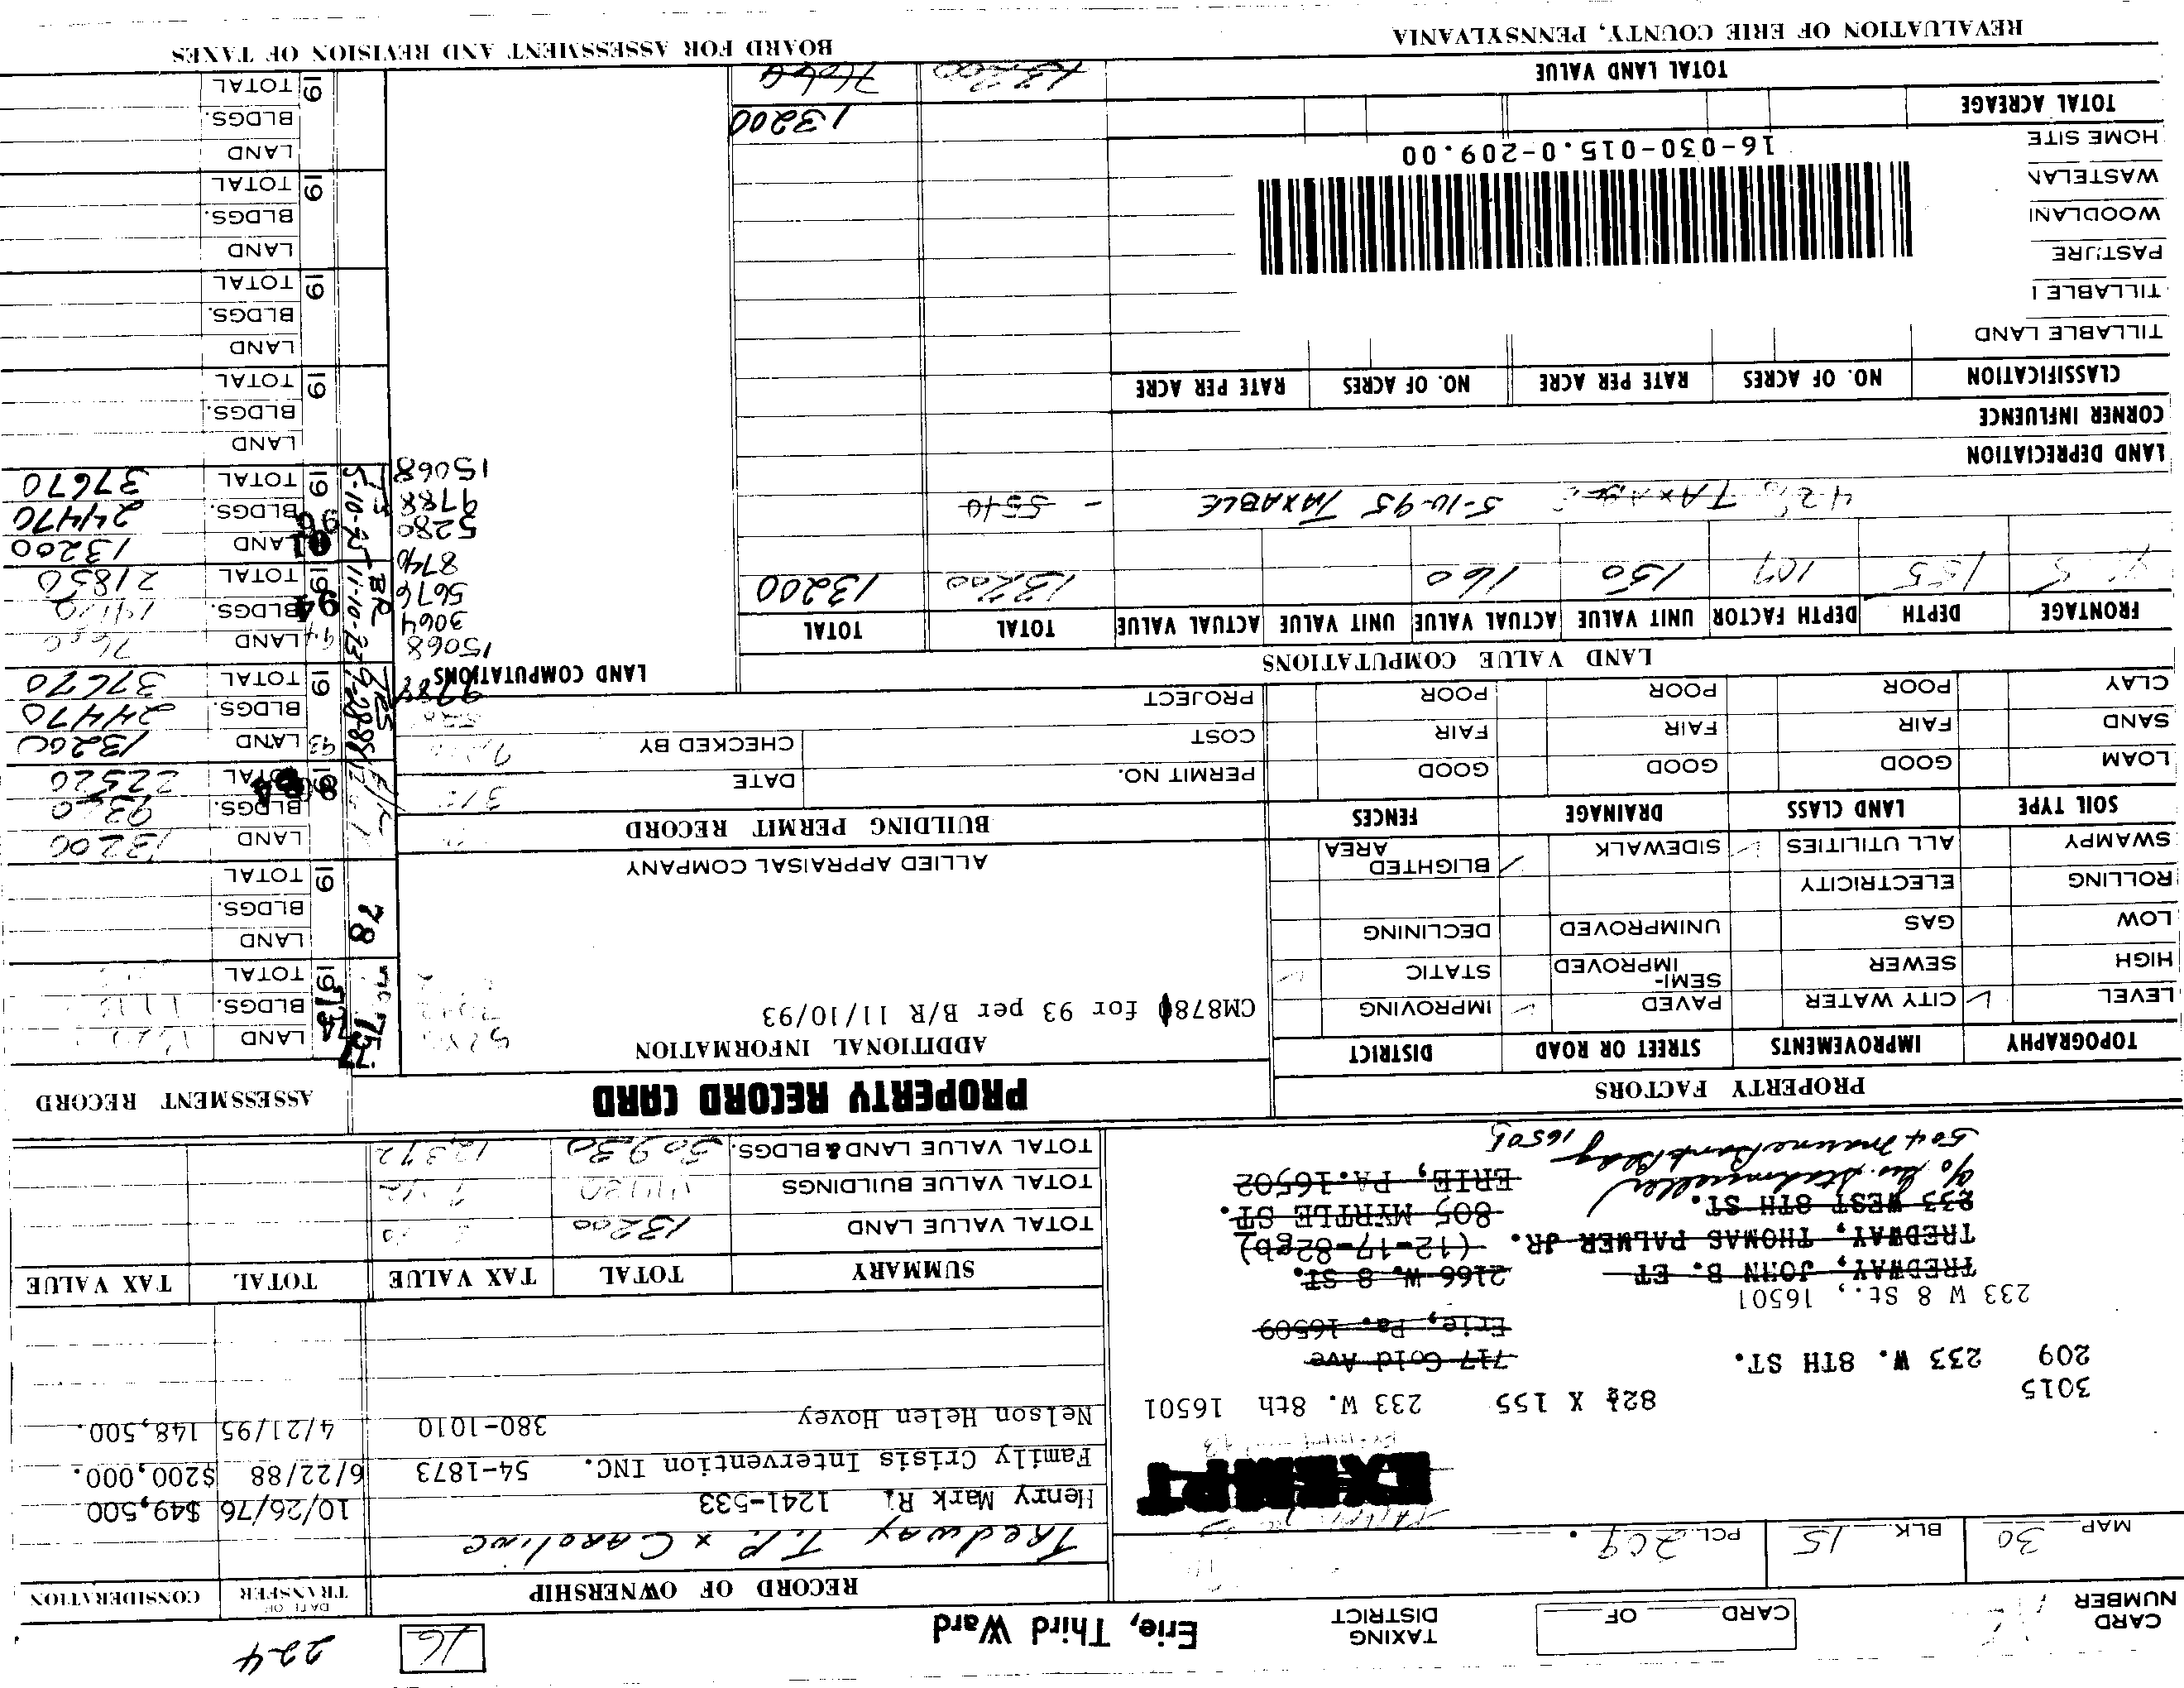 CARD NUMBER
CARD OF
TAXING DISTRICT Erie, Third Ward
16
224
MAP 30 BLK. 15 PCL. 209
EXEMPT
3015 82½ X 155 233 W. 8th 16501
209 233 W. 8TH ST.
717 Gold Ave
Erie, Pa. 16509
233 W 8 St., 16501
TREDWAY, JOHN B. ET
2166 W. 8 ST.
TREDWAY, THOMAS PALMER JR. (12-17-82gb)
233 WEST 8TH ST.
805 MYRTLE ST.
ERIE, PA. 16502
504 Marine Bank Bldg 16501
RECORD OF OWNERSHIP
DATE OF TRANSFER
CONSIDERATION
Tredway T.P. x Caroline
Henry Mark R. 1241-533 10/26/76 $49,500
Family Crisis Intervention INC. 54-1873 6/22/88 $200,000.
Nelson Helen Hovey 380-1010 4/21/95 148,500.
SUMMARY TOTAL TAX VALUE TOTAL TAX VALUE
TOTAL VALUE LAND 13200
TOTAL VALUE BUILDINGS
TOTAL VALUE LAND & BLDGS. 30930 12,372
PROPERTY FACTORS
TOPOGRAPHY IMPROVEMENTS STREET OR ROAD DISTRICT
LEVEL ✓ CITY WATER PAVED ✓ IMPROVING
HIGH SEWER SEMI-IMPROVED STATIC ✓
LOW GAS UNIMPROVED DECLINING
ROLLING ELECTRICITY
SWAMPY ALL UTILITIES ✓ SIDEWALK ✓ BLIGHTED AREA
SOIL TYPE LAND CLASS DRAINAGE FENCES
LOAM GOOD GOOD GOOD
SAND FAIR FAIR FAIR
CLAY POOR POOR POOR
PROPERTY RECORD CARD
ADDITIONAL INFORMATION
CM8780 for 93 per B/R 11/10/93
ALLIED APPRAISAL COMPANY
BUILDING PERMIT RECORD
PERMIT NO. DATE
COST CHECKED BY
PROJECT
LAND VALUE COMPUTATIONS
FRONTAGE DEPTH DEPTH FACTOR UNIT VALUE ACTUAL VALUE UNIT VALUE ACTUAL VALUE TOTAL TOTAL
155 107 150 160 13200 13200
42% TAXABLE 5-10-95 TAXABLE - 5540
LAND DEPRECIATION
CORNER INFLUENCE
CLASSIFICATION NO. OF ACRES RATE PER ACRE NO. OF ACRES RATE PER ACRE
TILLABLE LAND
TILLABLE I
PASTURE
WOODLANI
WASTELAN
HOME SITE
16-030-015.0-209.00
TOTAL ACREAGE 13200
TOTAL LAND VALUE 13200 7644
LAND COMPUTATIONS
9788
15068
3064
5676
8740
5280
9788
15068
ASSESSMENT RECORD
19 LAND
BLDGS.
TOTAL
78
19 LAND
BLDGS.
TOTAL
19 LAND 13200
BLDGS. 9320
TOTAL 22520
19 93 LAND 13200
BLDGS. 24470
TOTAL 37670
19 94 LAND
BLDGS.
TOTAL 21850
19 96 LAND 13200
BLDGS. 24470
TOTAL 37670
19 LAND
BLDGS.
TOTAL
19 LAND
BLDGS.
TOTAL
19 LAND
BLDGS.
TOTAL
19 LAND
BLDGS.
TOTAL
REVALUATION OF ERIE COUNTY, PENNSYLVANIA
BOARD FOR ASSESSMENT AND REVISION OF TAXES